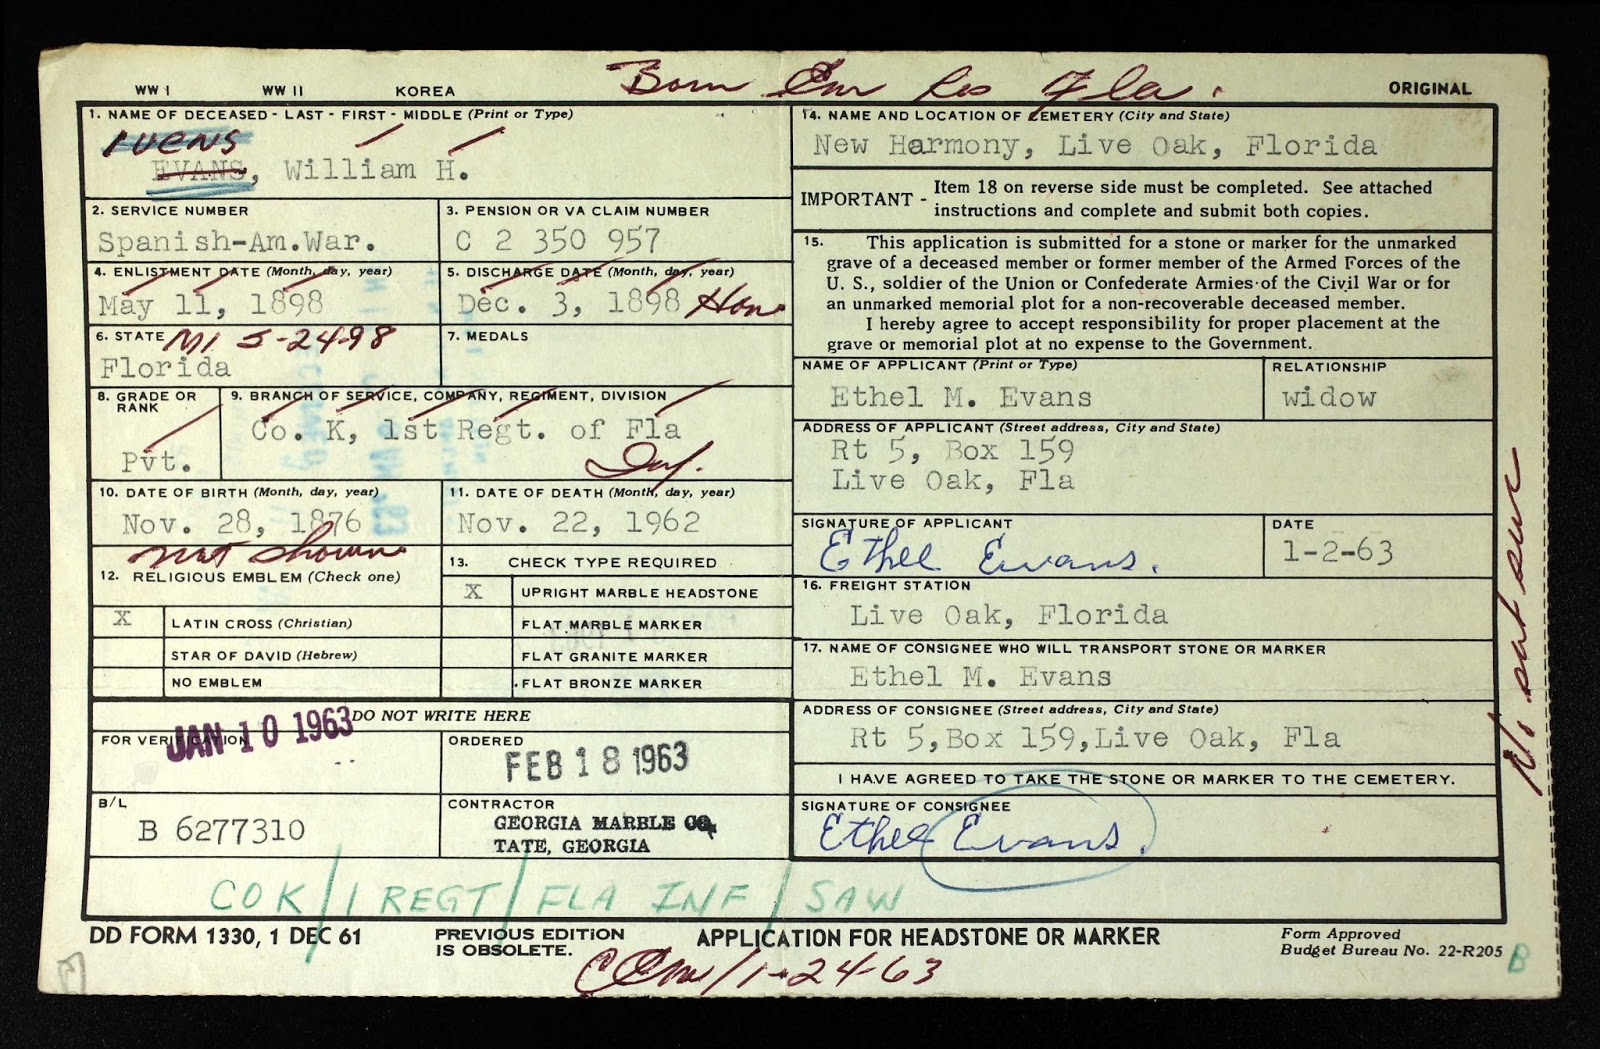 WW I WW II KOREA Born Em Res Fla. ORIGINAL
1. NAME OF DECEASED - LAST - FIRST - MIDDLE (Print or Type)
IVENS
EVANS, William H.
2. SERVICE NUMBER
Spanish-Am.War.
3. PENSION OR VA CLAIM NUMBER
C 2 350 957
4. ENLISTMENT DATE (Month, day, year)
May 11, 1898
5. DISCHARGE DATE (Month, day, year)
Dec. 3, 1898 Hon
6. STATE MI 5-24-98
Florida
7. MEDALS
8. GRADE OR RANK
Pvt.
9. BRANCH OF SERVICE, COMPANY, REGIMENT, DIVISION
Co. K, 1st Regt. of Fla
Inf.
10. DATE OF BIRTH (Month, day, year)
Nov. 28, 1876
not shown
11. DATE OF DEATH (Month, day, year)
Nov. 22, 1962
12. RELIGIOUS EMBLEM (Check one)
X LATIN CROSS (Christian)
STAR OF DAVID (Hebrew)
NO EMBLEM
13. CHECK TYPE REQUIRED
X UPRIGHT MARBLE HEADSTONE
FLAT MARBLE MARKER
FLAT GRANITE MARKER
FLAT BRONZE MARKER
DO NOT WRITE HERE
FOR VERIFICATION
JAN 10 1963
ORDERED
FEB 18 1963
B/L
B 6277310
CONTRACTOR
GEORGIA MARBLE CO.
TATE, GEORGIA
14. NAME AND LOCATION OF CEMETERY (City and State)
New Harmony, Live Oak, Florida
IMPORTANT - Item 18 on reverse side must be completed. See attached
instructions and complete and submit both copies.
15. This application is submitted for a stone or marker for the unmarked
grave of a deceased member or former member of the Armed Forces of the
U. S., soldier of the Union or Confederate Armies of the Civil War or for
an unmarked memorial plot for a non-recoverable deceased member.
I hereby agree to accept responsibility for proper placement at the
grave or memorial plot at no expense to the Government.
NAME OF APPLICANT (Print or Type)
Ethel M. Evans
RELATIONSHIP
widow
ADDRESS OF APPLICANT (Street address, City and State)
Rt 5, Box 159
Live Oak, Fla
SIGNATURE OF APPLICANT
Ethel Evans.
DATE
1-2-63
16. FREIGHT STATION
Live Oak, Florida
17. NAME OF CONSIGNEE WHO WILL TRANSPORT STONE OR MARKER
Ethel M. Evans
ADDRESS OF CONSIGNEE (Street address, City and State)
Rt 5,Box 159,Live Oak, Fla
I HAVE AGREED TO TAKE THE STONE OR MARKER TO THE CEMETERY.
SIGNATURE OF CONSIGNEE
Ethel Evans.
CO K / 1 REGT / FLA INF / SAW
DD FORM 1330, 1 DEC 61
PREVIOUS EDITION
IS OBSOLETE.
APPLICATION FOR HEADSTONE OR MARKER
Form Approved
Budget Bureau No. 22-R205 B
1-24-63